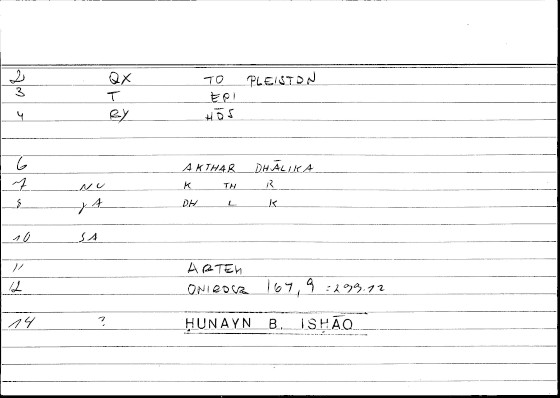 2 QX TO PLEISTON
3 T EPI
4 RY HŌS
6 AKTHAR DHĀLIKA
7 NU K TH R
8 yA DH L K
10 SA
11 ARTEM
12 ONIROCR 167,9 = 299.12
14 ? ḤUNAYN B. ISḤĀQ